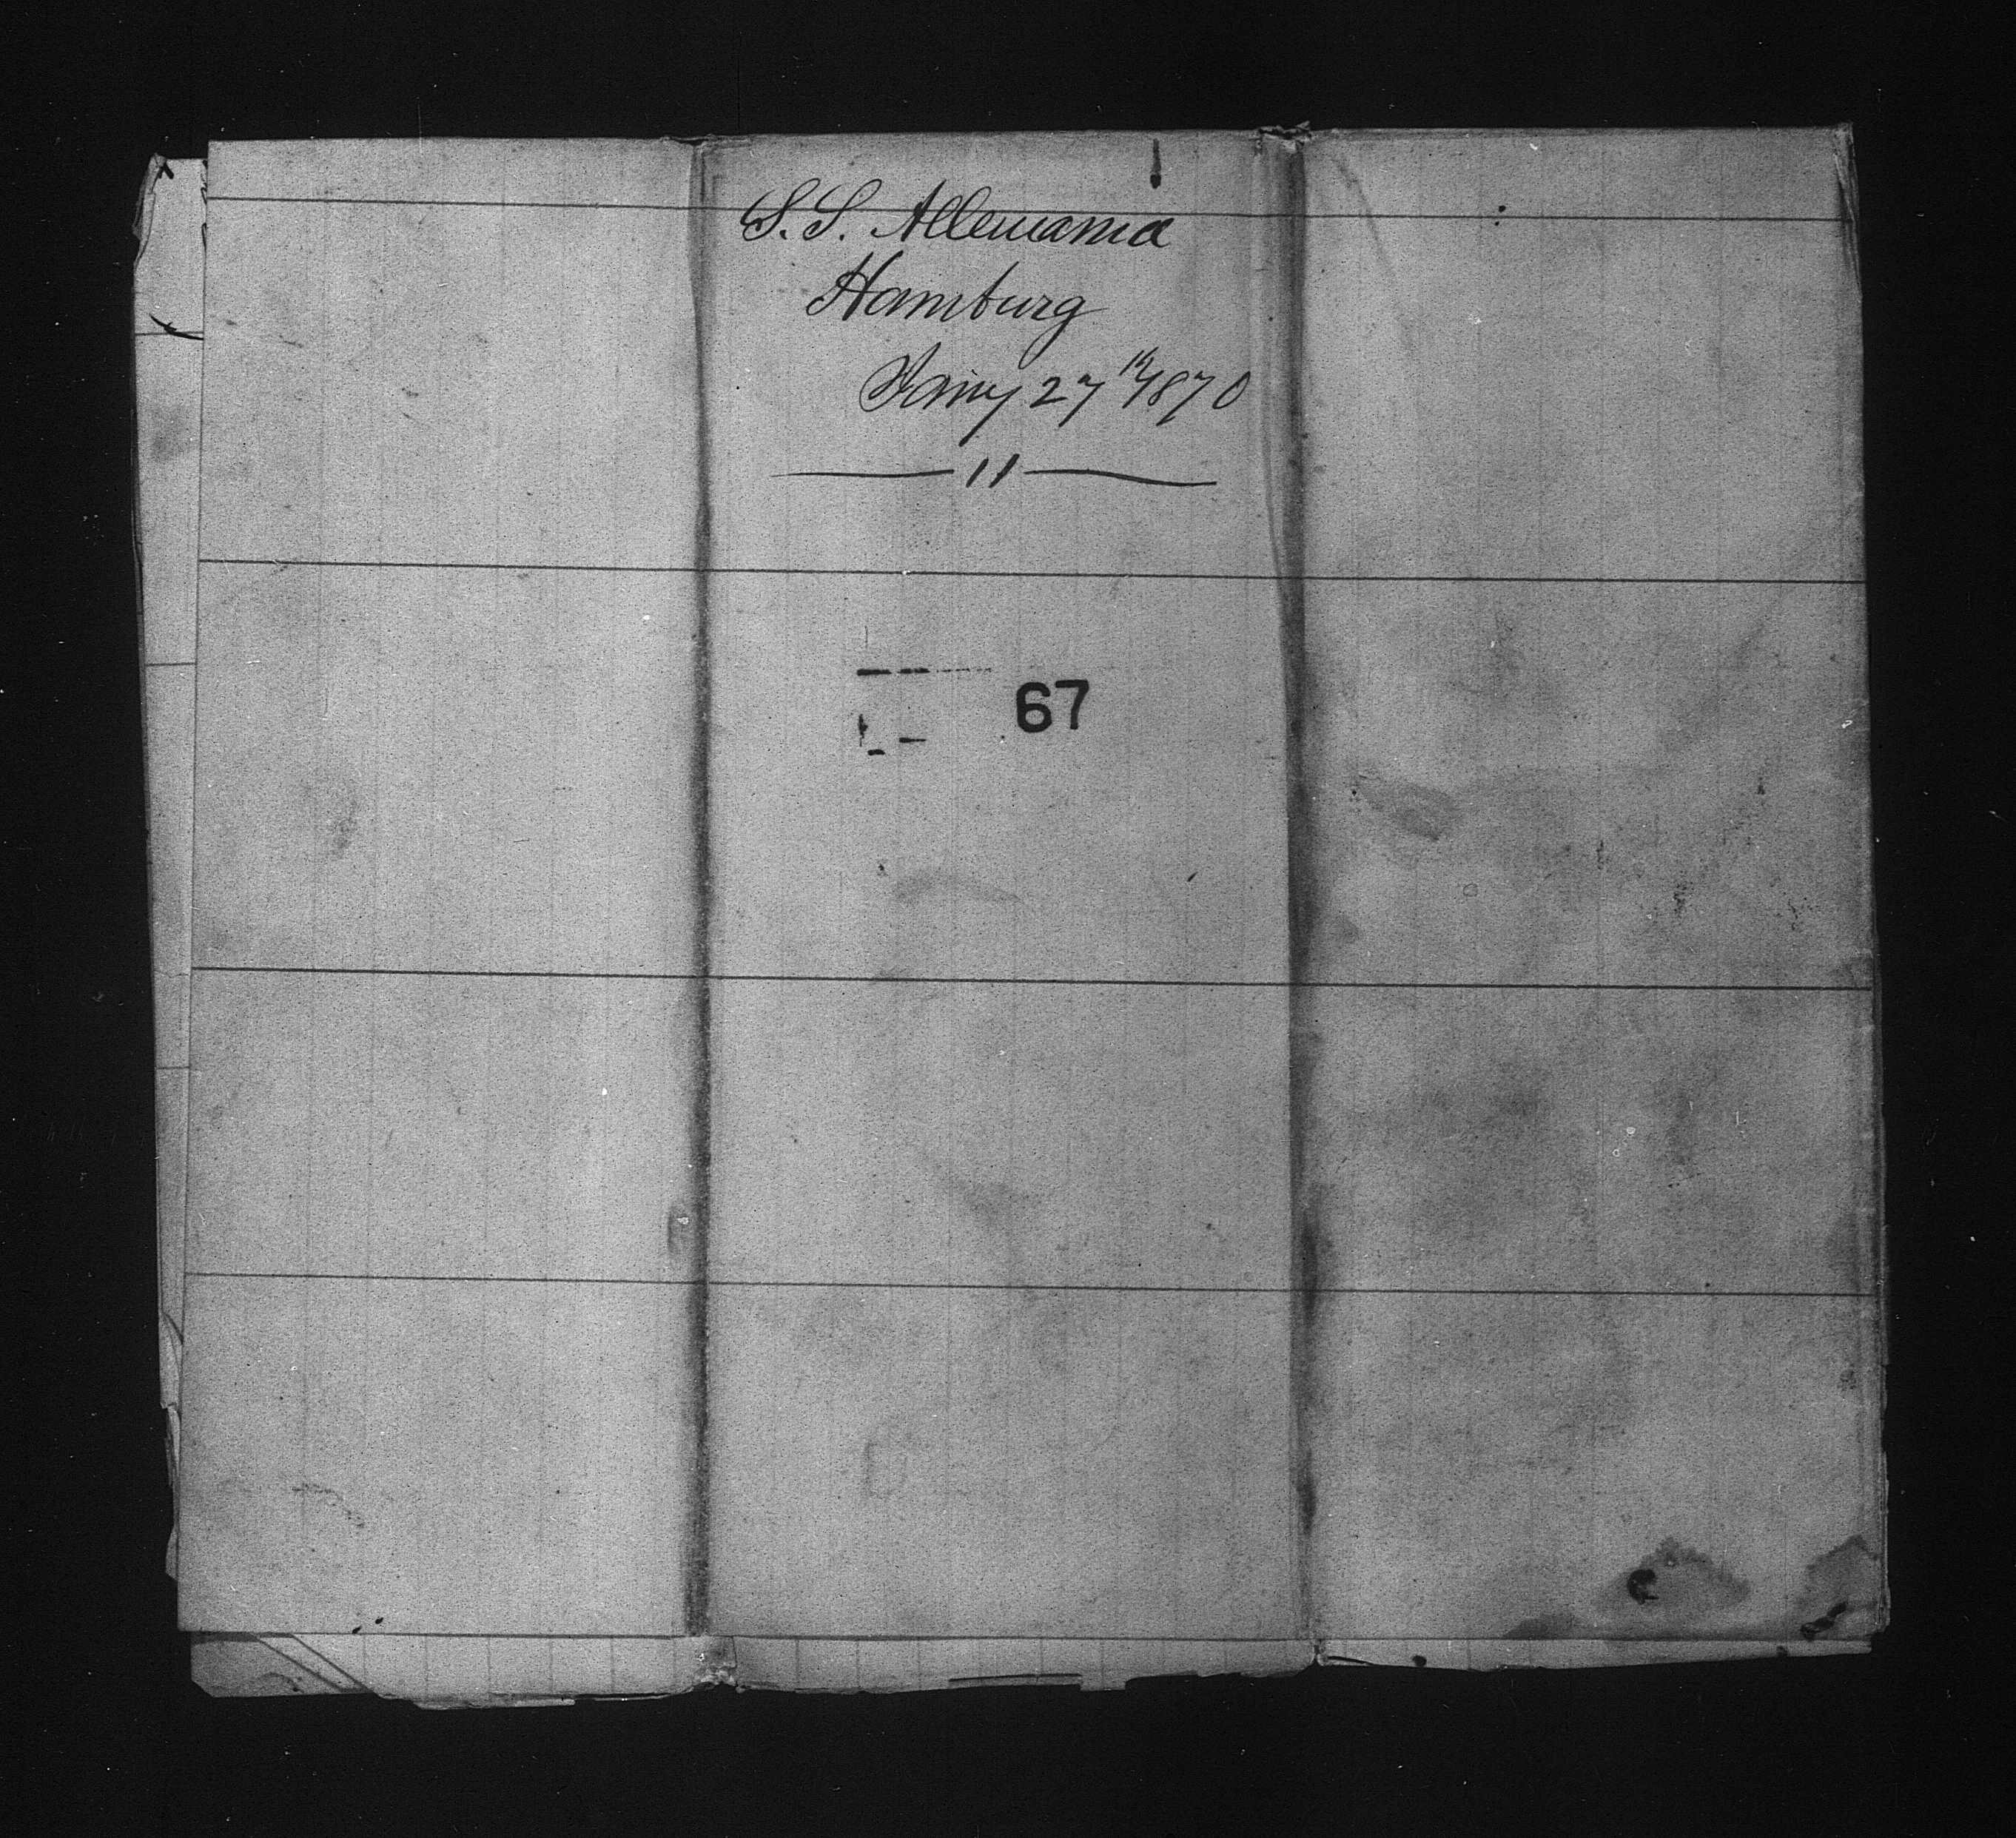 S.S. Allemania
Hamburg
Jany 27th 1870
11
67